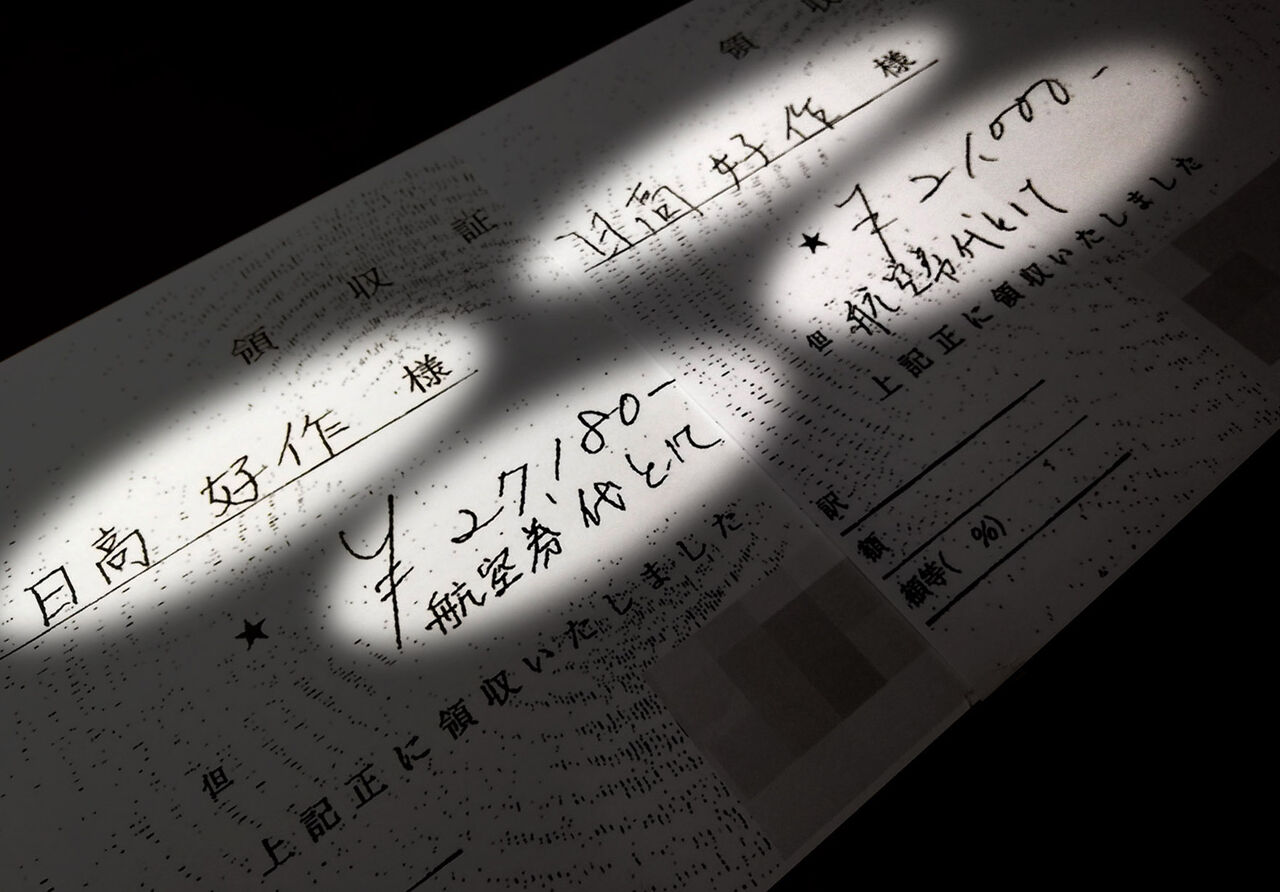 領収証
日高 好作 様
★ ¥27,180-
但 航空券代として
上記正に領収いたしました
領収
日高 好作 様
★ ¥21,000-
但 航空券代として
上記正に領収いたしました
訳
額
額等( %)